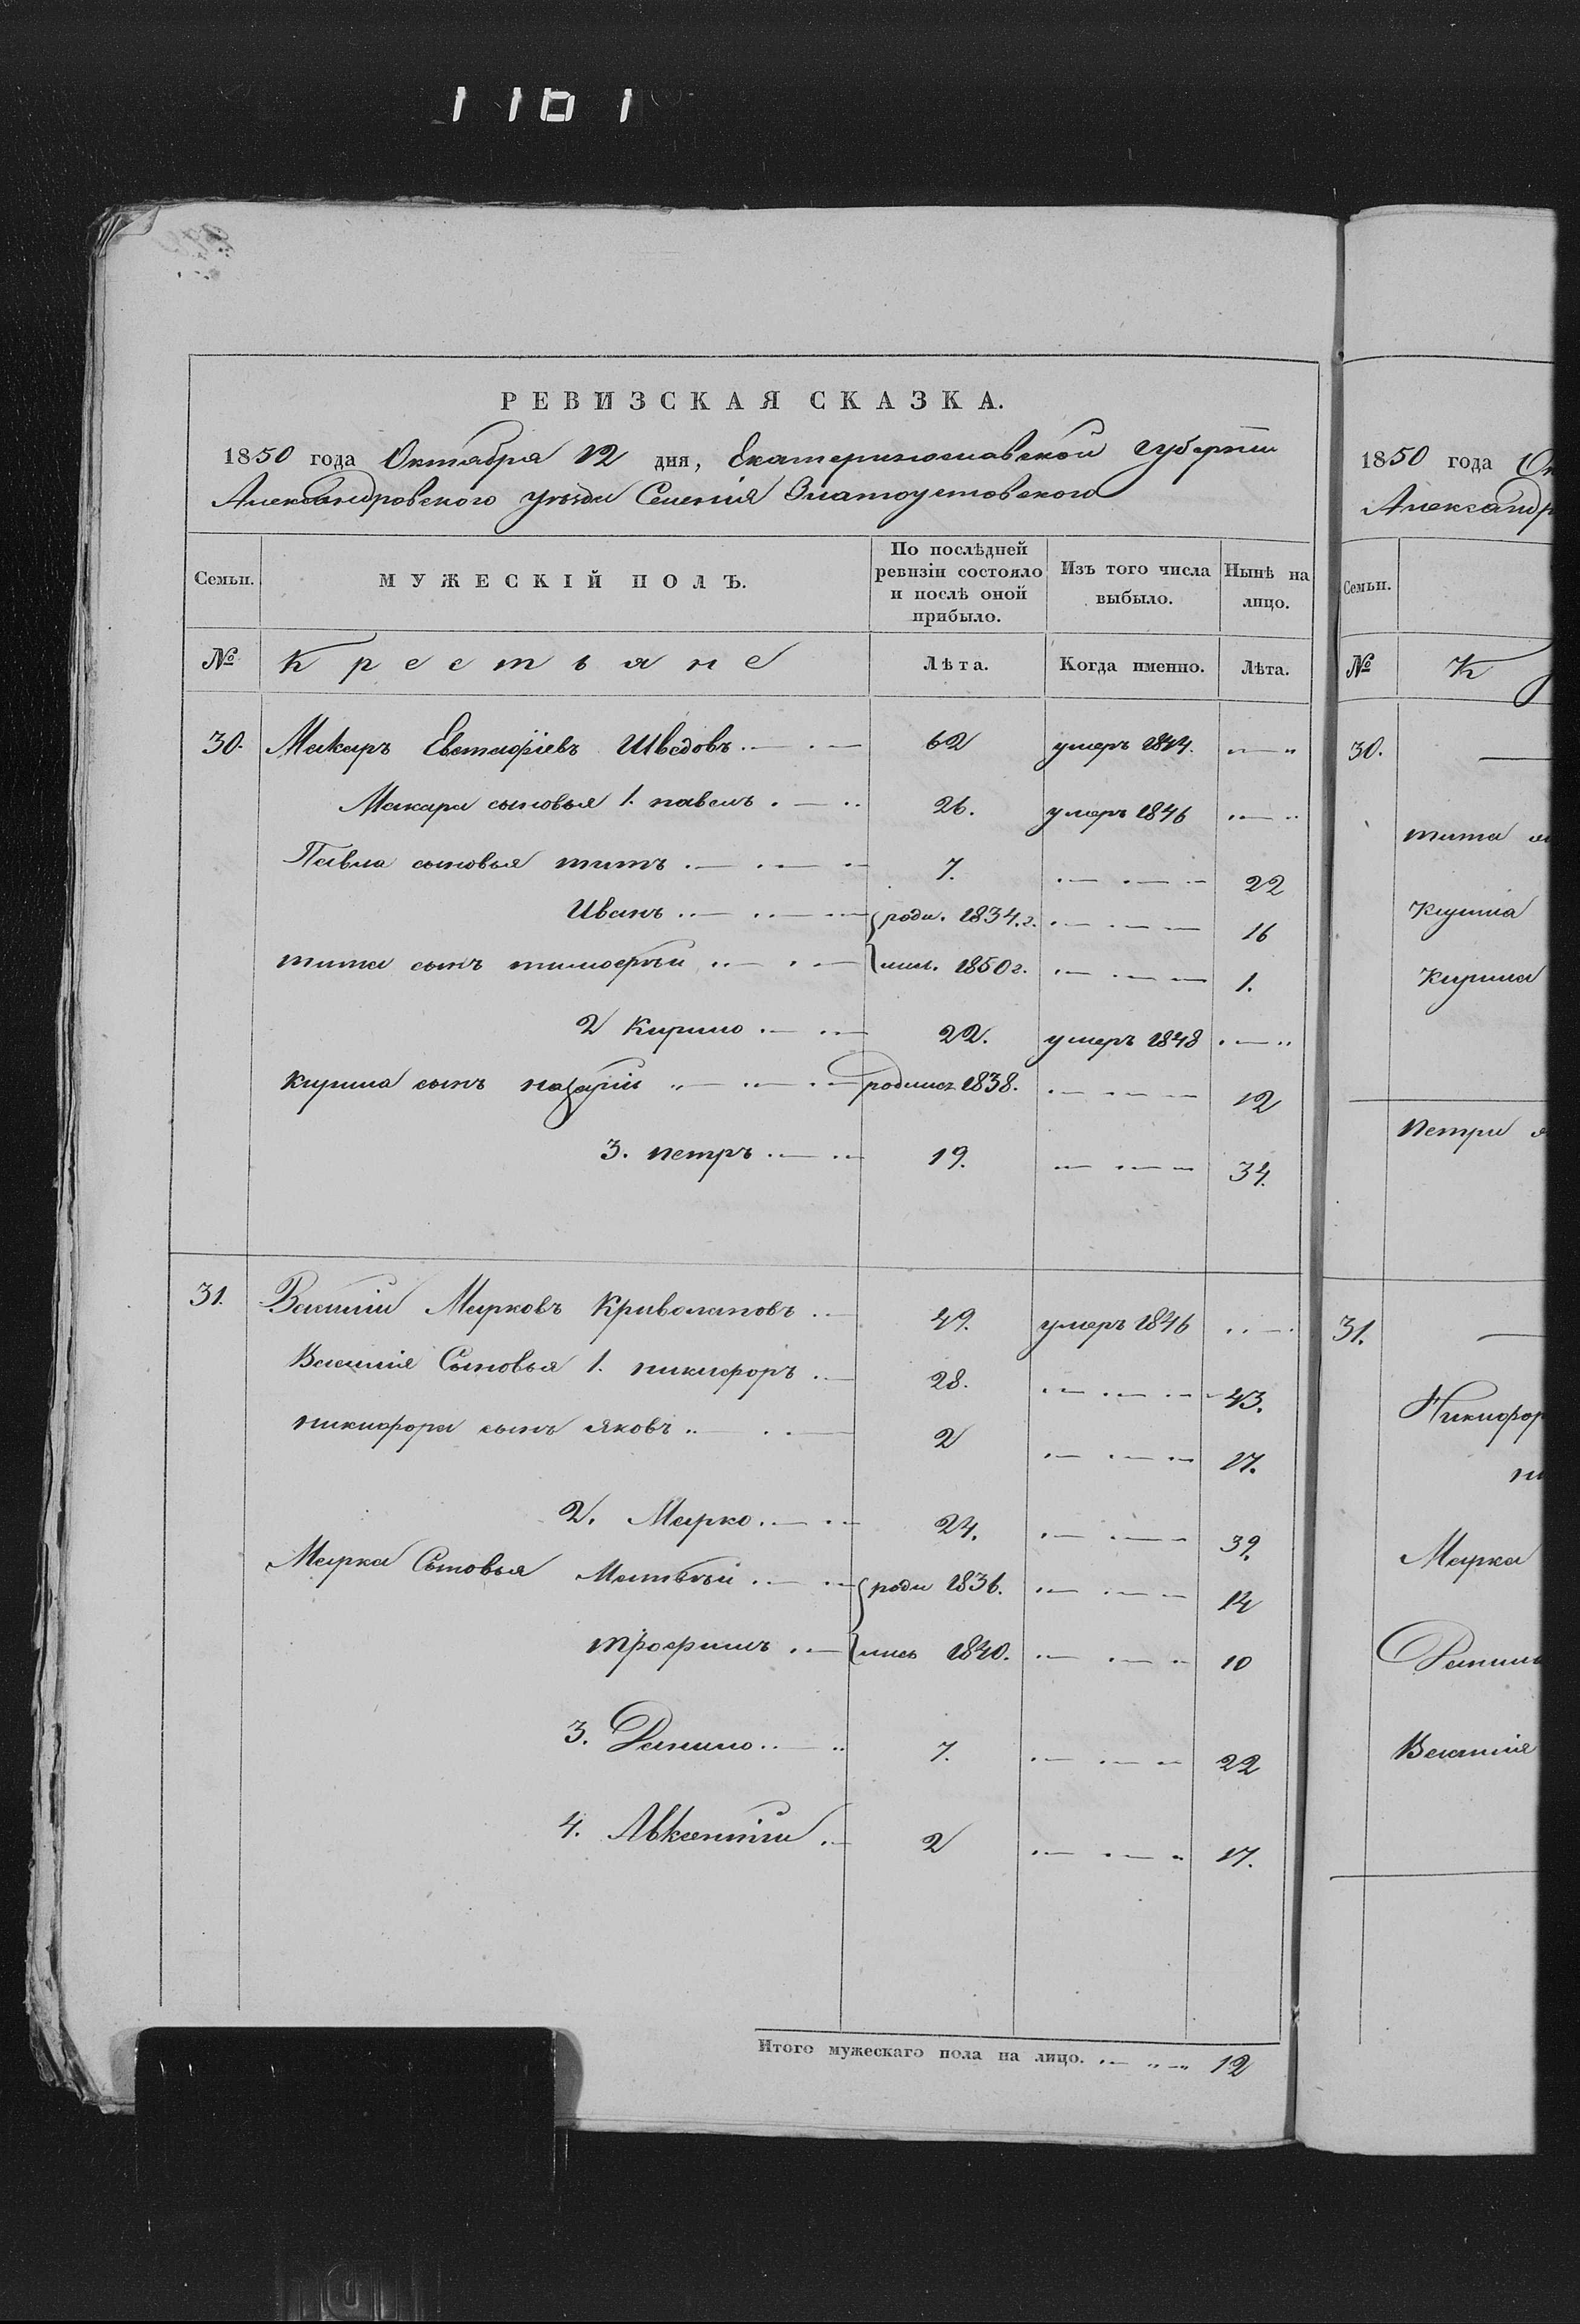 1101
РЕВИЗСКАЯ СКАЗКА.
1850 года Октября 12 дня, Екатеринославской губерніи
Александровского уѣзда Селенія Златоустовского
Семьи. МУЖЕСКІЙ ПОЛЪ. По послѣдней ревизіи состояло и послѣ оной прибыло. Изъ того числа выбыло. Нынѣ на лицо.
№ Крестьяне Лѣта. Когда именно. Лѣта.
30. Макаръ Евстафіевъ Шведовъ 62 умеръ 1844.
Макара сыновья 1. павелъ 26. умеръ 1846
Павла сыновья титъ 7. 22
Иванъ роди. 1834.г. 16
тита сынъ тимофѣй лись. 1850г. 1.
2 Кирило 22. умеръ 1848
кирила сынъ назарій родился 1838. 12
3. петръ 19. 34.
31. Василій Марковъ Криволаповъ 49. умеръ 1846
Василія Сыновья 1. никифоръ 28. 43.
никифора сынъ яковъ 2 17.
2. Марко 24. 39.
Марка Сыновья Матвѣй роди 1836. 14
трофимъ лись 1840. 10
3. Данило 7. 22
4. Авксентій 2 17.
Итого мужескаго пола на лицо. 12
1850 года
Александр
Семьи.
№ К
30.
тита
Кирила
Кирила
петра
31.
Никифор
Марка
Данила
Василія